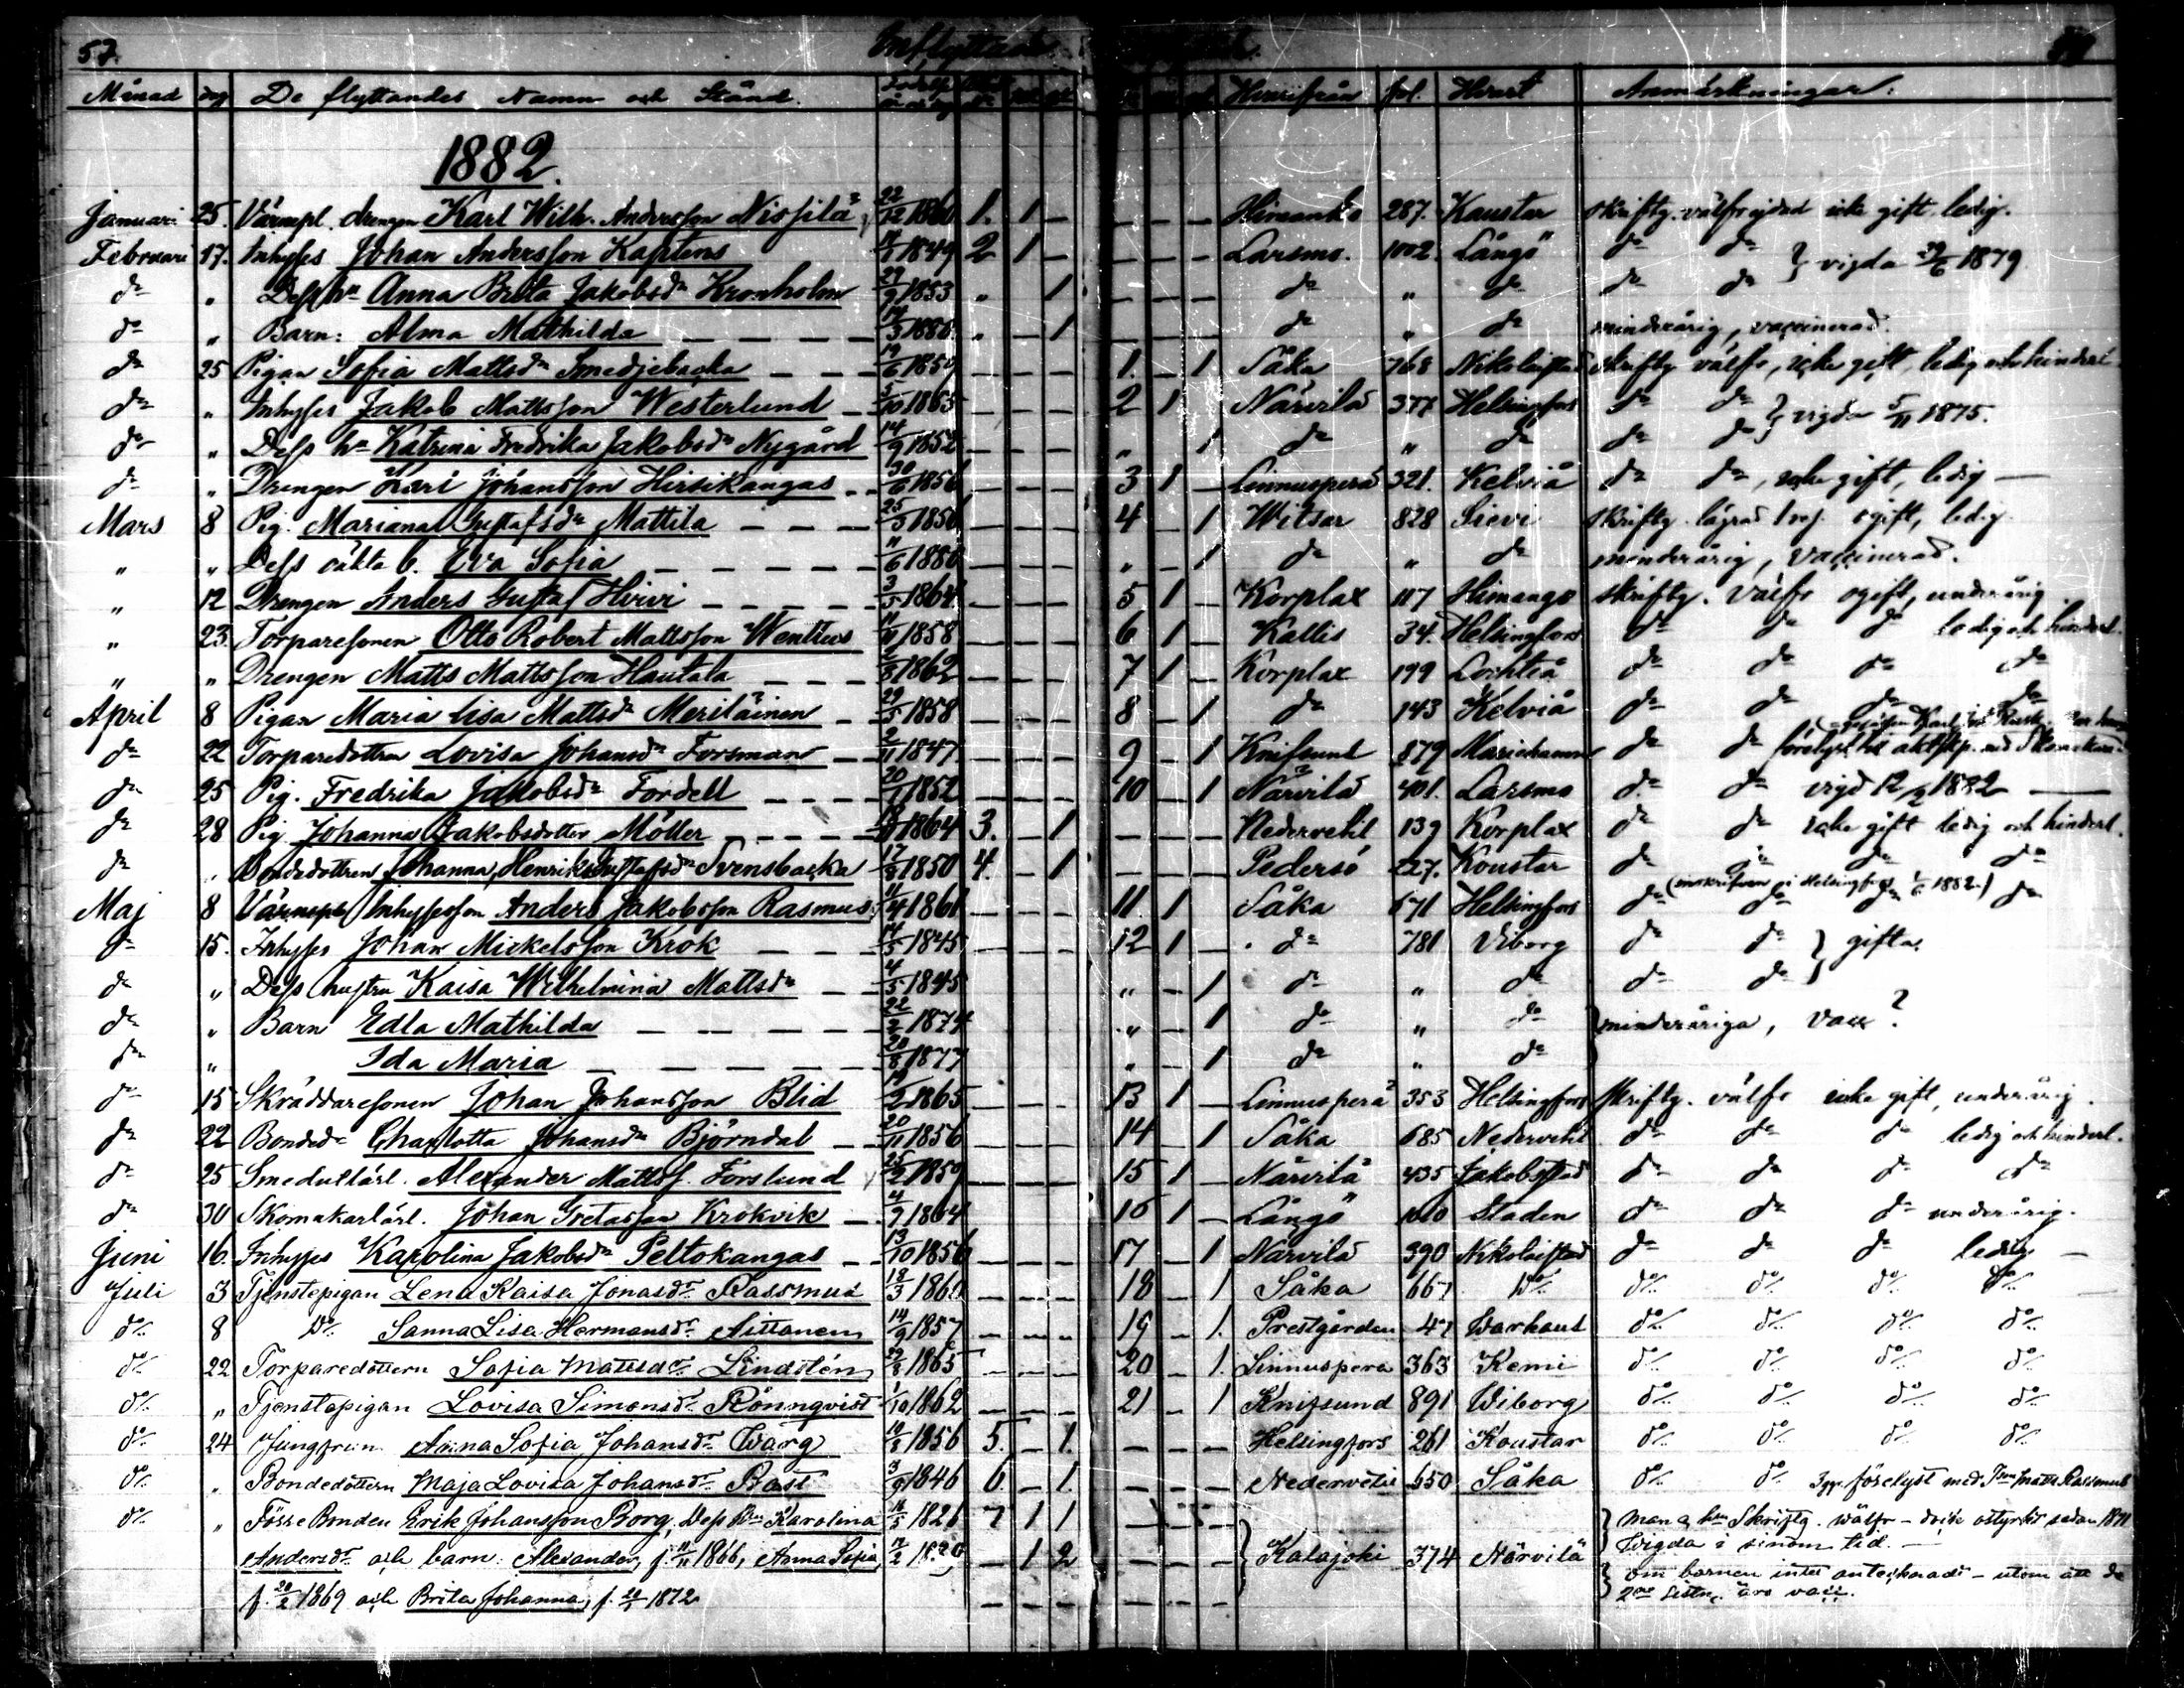 57.
Inflyttade
Månad dag De flyttandes Namn och Stånd. Hvarifrån fol. Hvart Anmärkningar.
1882.
Januari 25. Värnpl. drengen Karl Wilh. Andersson Nissilä 22/12 1860 1. 1 — — — — Himanko 287. Kaustar skriftg. välfrejdad icke gift, ledig.
Februari 17. Inhyses Johan Andersson Kaptens 1849 2 1 — — — — Larsmo. 1002. Långö do do } vigda 1879
do " Dess hu Anna Brita Jakobsdr Kronholm 29/9 1853 " 1 — — — do " do do do
do " Barn: Alma Mathilda — — — — 1880. " — 1 — — — do " do minderårig, vaccinerad.
do 25 Pigan Sofia Mattsdr Smedjebacka — — — 19/6 1859 — — — 1. — 1 Såka 768 Nikolaistad skriftg välfr, icke gift, ledig och hinderl.
do " Inhyses Jakob Mattsson Westerlund — 5/10 1865 — — — 2 1 — Närvilä 377 Helsingfors do do } vigda 5/11 1875.
do " Dess hu Katrina Fredrika Jakobsdr Nygård 14/9 1852 — — — " 1 do " do do do
do " Drengen Karl Johansson Hirsikangas 30/6 1856 — — — 3 1 — Linnusperä 321. Kelviå do do, icke gift, ledig —
Mars 8 Pig. Mariana Gustafsdr Mattila — — — 25/3 1850 — — — 4 — 1 Witsar 828 Sievi skriftg. ogift, ledig.
" " Dess oäkta b. Eva Sofia — — — — 11/6 1880 — — — " — 1 do " do minderårig, Vaccinerad.
" 12 Drengen Anders Gustaf Hirvi — — — — 3/5 1864 — — — 5 1 — Korplax 117 Himango skriftg. Välfr ogift, underårig
" 23. Torparesonen Otto Robert Mattsson Wentus 1858 — — — 6 1 — Kallis 34. Helsingfors do do do ledig och hinderl.
" " Drengen Matts Mattsson Hautala — — — 1862 — — — 7 1 — Korplax 199 Lochteå do do do do
April 8 Pigan Maria Lisa Mattsdr Meriläinen — 29/5 1858 — — — 8 — 1 do 143 Kelviå do do do do
do 22 Torparedottren Lovisa Johansdr Forsman — 2/11 1847. — — — 9 — 1 Knifsund 879 Mariehamn do do
do 25 Pig. Fredrika Jakobsdr Fordell — — — 1852 — — — 10 — 1 Närvilä 401. Larsmo do do vigd 1882 —
do 28 Pig Johanna Jakobsdotter Möller — — — 1864 3. — 1 — — — Nedervetil 139 Korplax do do icke gift ledig och hinderl.
do " Bondedottren Johanna, Henrika Gustafsdr Svensbacka 17/8 1850 4. — 1 — — — Pedersö 227. Koustar do do do do
(inskrifven i Helsingfors 1882.)
Maj 8 Värnepl. Inhysesson Anders Jakobsson Rasmus 11/4 1861 — — — 11. 1 — Såka 671 Helsingfors do do do do
do 15. Inhyses Johan Mickelsson Krok — — 14/5 1845 — — — 12 1 — do 781 Viborg do do } gifta.
do " Dess hustru Kaisa Wilhelmina Mattsdr — 4/5 1845 — — — " — 1 do " do do do
do " Barn Edla Mathilda — — — — 22/2 1874 — — — " — 1 do " do } minderåriga, vacc?
do " Ida Maria — — — — 20/8 1877 — — — " — 1 do " do
do 15 Skräddaresonen Johan Johansson Blid 1865 — — — 13 1 — Linnusperä 353 Helsingfors skriftg. välfr icke gift, underårig.
do 22 Bonded. Charlotta Johansdr Björndal — 20/11 1856 — — — 14 — 1 Såka 685 Nedervetil do do do ledig och hinderl.
do 25 Smedultärl. Alexander Mattss. Forslund 25/2 1859 — — — 15 1 — Närvilä 435 Jakobstad do do do do
do 30 Skomakarlärl. Johan Gretasson Krokvik — 4/9 1864 — — — 16 1 — Långö 1010 Staden do do do underårig.
Juni 16. Inhyses Karolina Jakobsdr Peltokangas — 13/10 1856 — — — 17 — 1 Närvilä 390 Nikolaistad do do do ledig —
Juli 3 Tjenstepigan Lena Kaisa Jonasdr Rassmus 18/3 1860 — — — 18 — 1 Såka 667 Do do do do do
do 8 Do Sanna Lisa Hermansdr Aittanen 14/9 1857 — — — 19 — 1. Prestgården 47 Warkaus do do do do
do 22 Torparedottern Sofia Mattsdr Lindstén 29/8 1865 — — — 20 — 1. Linnuspera 363 Kemi do do do do
do " Tjenstepigan Lovisa Simonsdr Rönnqvist 1/10 1862 — — — 21 — 1 Knifsund 891 Wiborg do do do do
do 24 Jungfrun Anna Sofia Johansdr Warg 10/8 1856 5. — 1. — — — Helsingfors 261 Koustar do do do do
do " Bondedottern Maja Lovisa Johansdr Bast 3/9 1846 6. — 1. — — — Nedervetil 550 Såka do do 3 ggr förelyst med Matts Rassmus
do " Förre Bonden Erik Johansson Borg, Dess hu Karolina 16/5 1826 7 1 1 — — — } man & hu Skriftg. wälfr
Andersdr och barn: Alexander, f. 11/11 1866, Anna Sofia, 12/2 — 1 2 — — — Kalajoki 374 Närvilä Wigda i sinom tid. —
f. 20/2 1869 och Brita Johanna, f. 1872 — — — om barnen intet antecknadt — utom att de 2ne sistn. äro vacc.